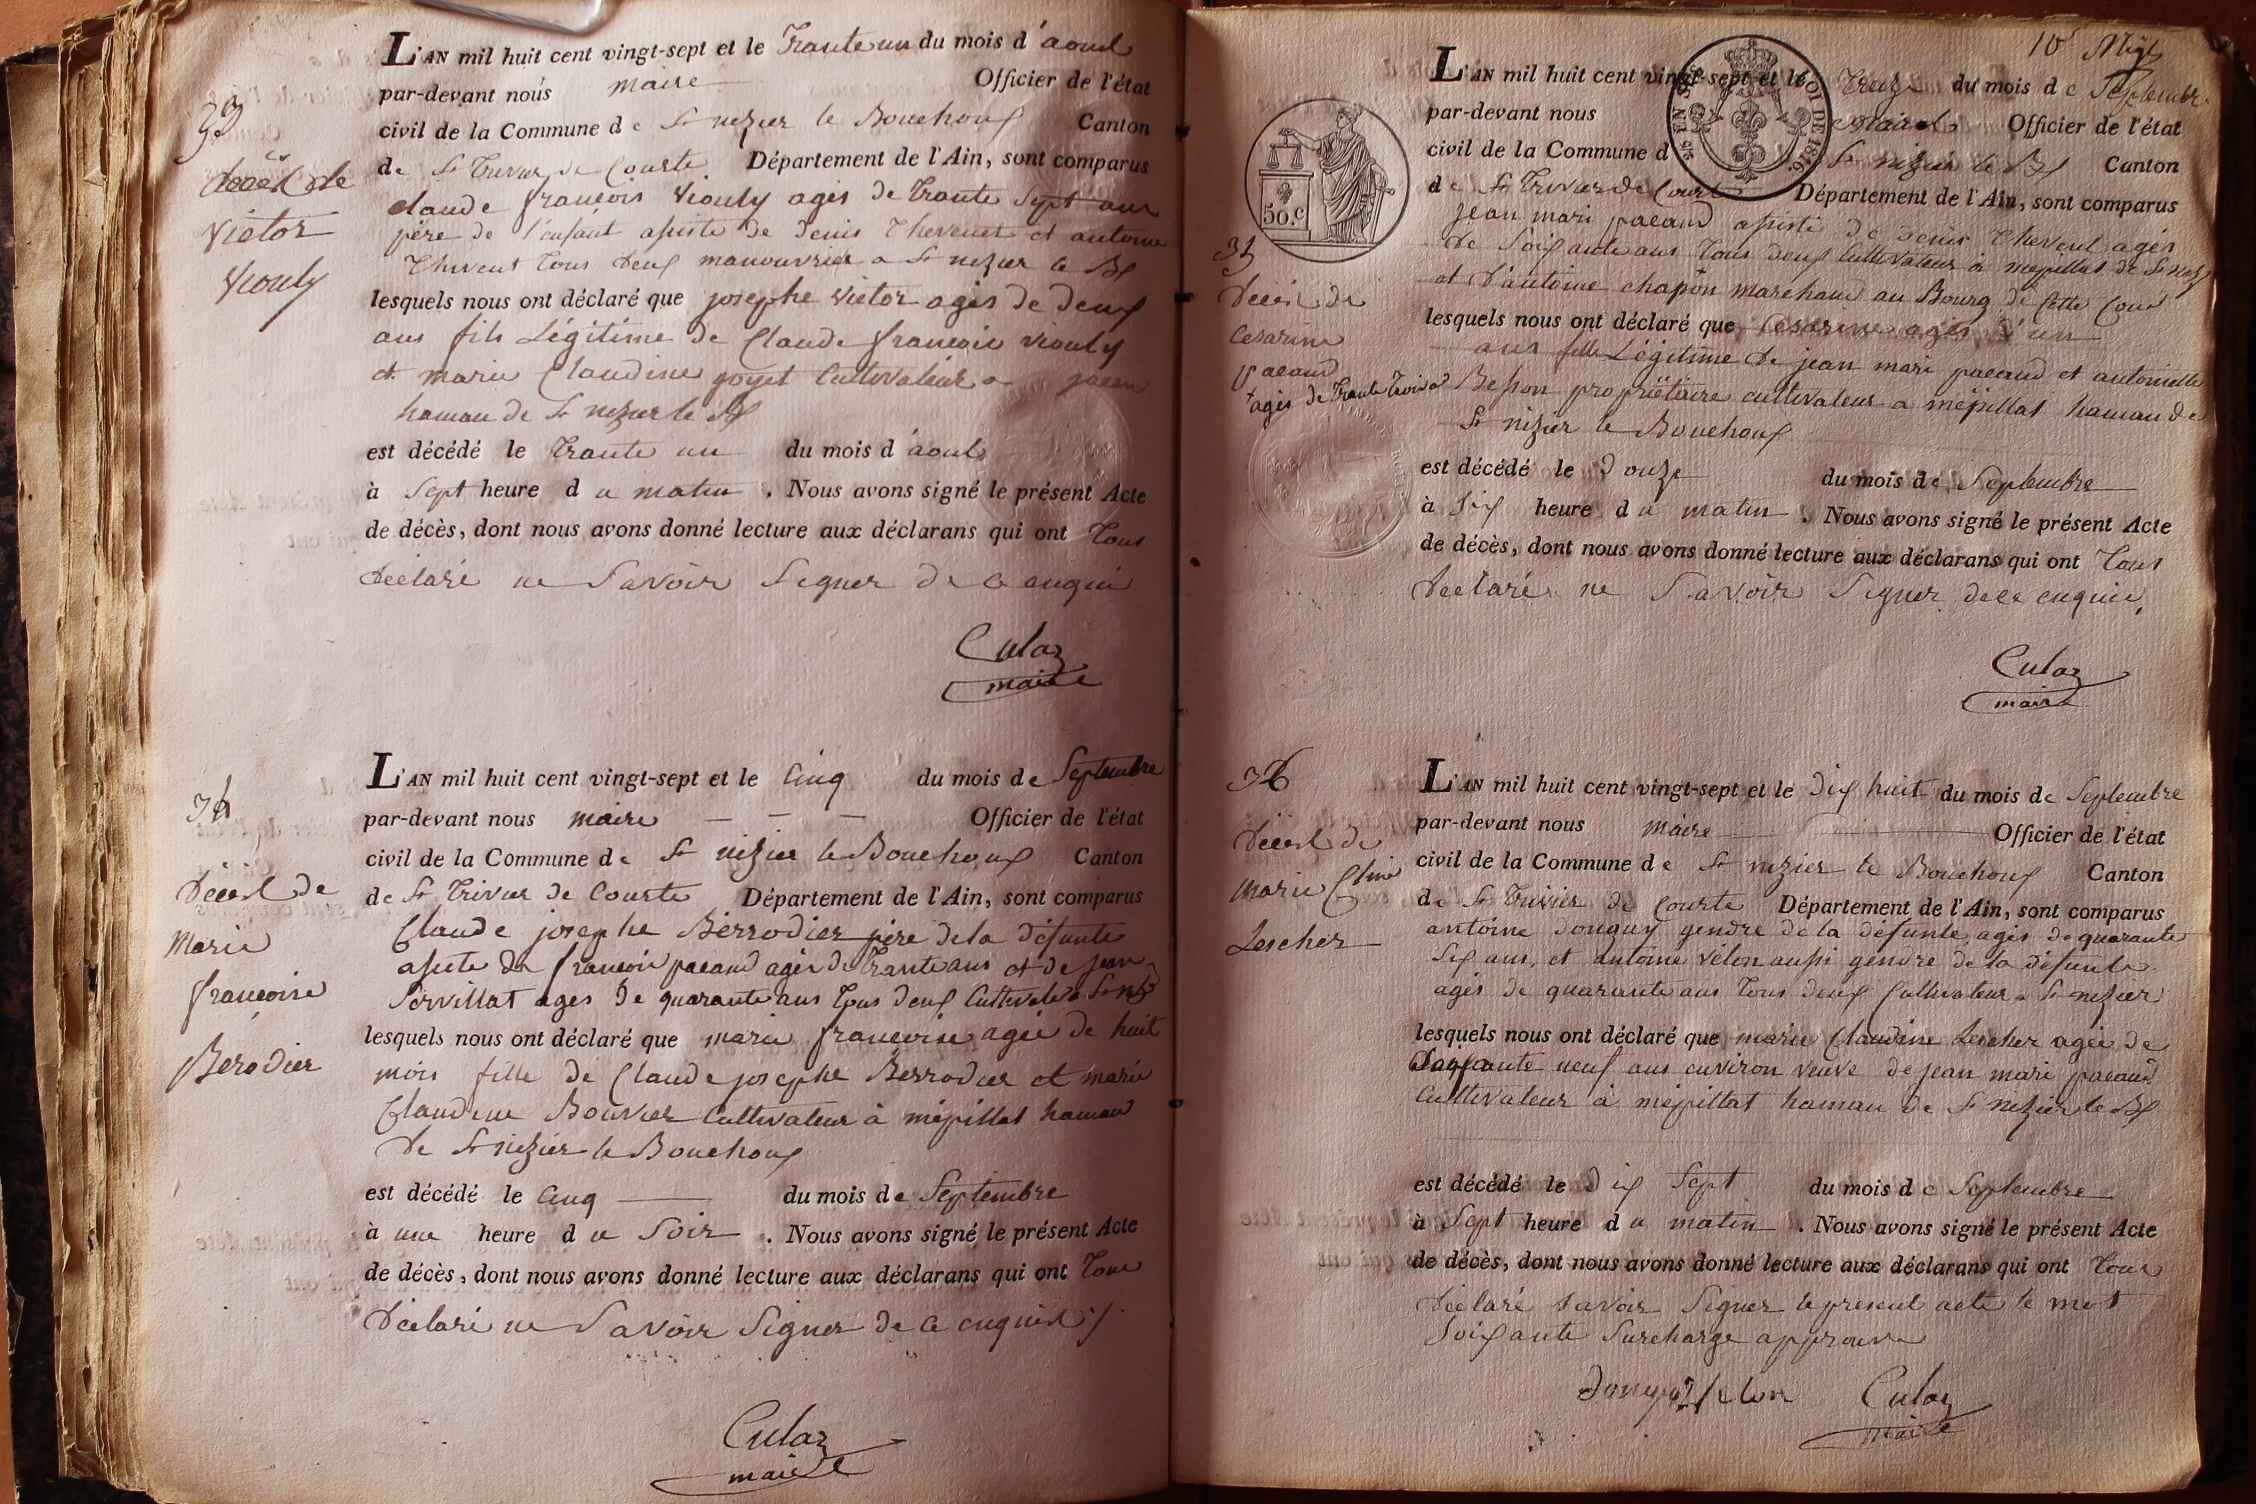 L'AN mil huit cent vingt-sept et le Trante un du mois d'aout
par-devant nous maire Officier de l'état
civil de la Commune de St nizier le Bouchoux Canton
de St Trivier de Courte Département de l'Ain, sont comparus
claude francois Viouly agés de trante Sept ans
père de l'enfant asisté de denis Thevenet et antoine
Thevent tous deux manouvrier a St nizier le Bx
lesquels nous ont déclaré que josephe victor agés de deux
ans fils Légitime de Claude francois viouly
et marie Claudine goyet Cultivateur a
hamau de St nizier le Bx
est décédé le trante un du mois d'aout
à Sept heure du matin. Nous avons signé le présent Acte
de décès, dont nous avons donné lecture aux déclarans qui ont tous
declaré ne Savoir Signer de ce enquis
Culaz
maire
33
décès de
victor
Viouly
L'AN mil huit cent vingt-sept et le Cinq du mois de Septembre
par-devant nous maire Officier de l'état
civil de la Commune de St nizier le Bouchoux Canton
de St Trivier de Courte Département de l'Ain, sont comparus
Claude josephe Berrodier père de la défunte
asisté de francois pacaud agés de Trante ans et de jean
Servillat agés de quarante ans tous deux Cultivate a St niz
lesquels nous ont déclaré que marie francoise agée de huit
mois fille de Claude josephe Berrodier et marie
Claudine Bouvier Cultivateur à mépillat hamau
de St nizier le Bouchoux
est décédé le Cinq du mois de Septembre
à une heure du Soir. Nous avons signé le présent Acte
de décès, dont nous avons donné lecture aux déclarans qui ont Tous
Déclaré ne Savoir Signer de ce enquis
Culaz
maire
34
Décès de
Marie
francoise
Berodier
10
L'AN mil huit cent vingt-sept et le Treize du mois de Septembre
par-devant nous maire Officier de l'état
civil de la Commune de St nizier le Bx Canton
de St Trivier de Courte Département de l'Ain, sont comparus
jean mari pacaud asisté de denis thevent agés
de Soixante ans tous deux Cultivateur à mépillat de St niz
et d'antoine chapon marchand au Bourg de cette Com
lesquels nous ont déclaré que Césarine agés d'un
ans fille Légitime de jean mari pacaud et antoinette
Besson propriétaire cultivateur a mépillat hamau de
St nizier le Bouchoux
est décédé le douze du mois de Septembre
à Six heure du matin. Nous avons signé le présent Acte
de décès, dont nous avons donné lecture aux déclarans qui ont Tous
declaré ne Savoir Signer de ce enquis
Culaz
maire
50.c
ROI DE 1816.
35
Décès de
Cesarine
pacaud
+ agés de trante trois
L'AN mil huit cent vingt-sept et le Dix huit du mois de Septembre
par-devant nous maire Officier de l'état
civil de la Commune de St nizier le Bouchoux Canton
de St Trivier de Courte Département de l'Ain, sont comparus
antoine donguy gendre de la défunte agés de quarante
Six ans, et antoine Velon aussi gendre de la défunte
agés de quarante ans tous deux Cultivateur a St nizier
lesquels nous ont déclaré que marie Claudine Lescher agée de
Soixante neuf ans environ veuve de jean mari pacaud
Cultivateur à mépillat hamau de St nizier le Bx
est décédé le dix Sept du mois de Septembre
à Sept heure du matin. Nous avons signé le présent Acte
de décès, dont nous avons donné lecture aux déclarans qui ont tous
Déclaré Savoir Signer le présent acte le mot
Soixante Surcharge approuve
Culaz
maire
36
Décès de
marie
Lescher